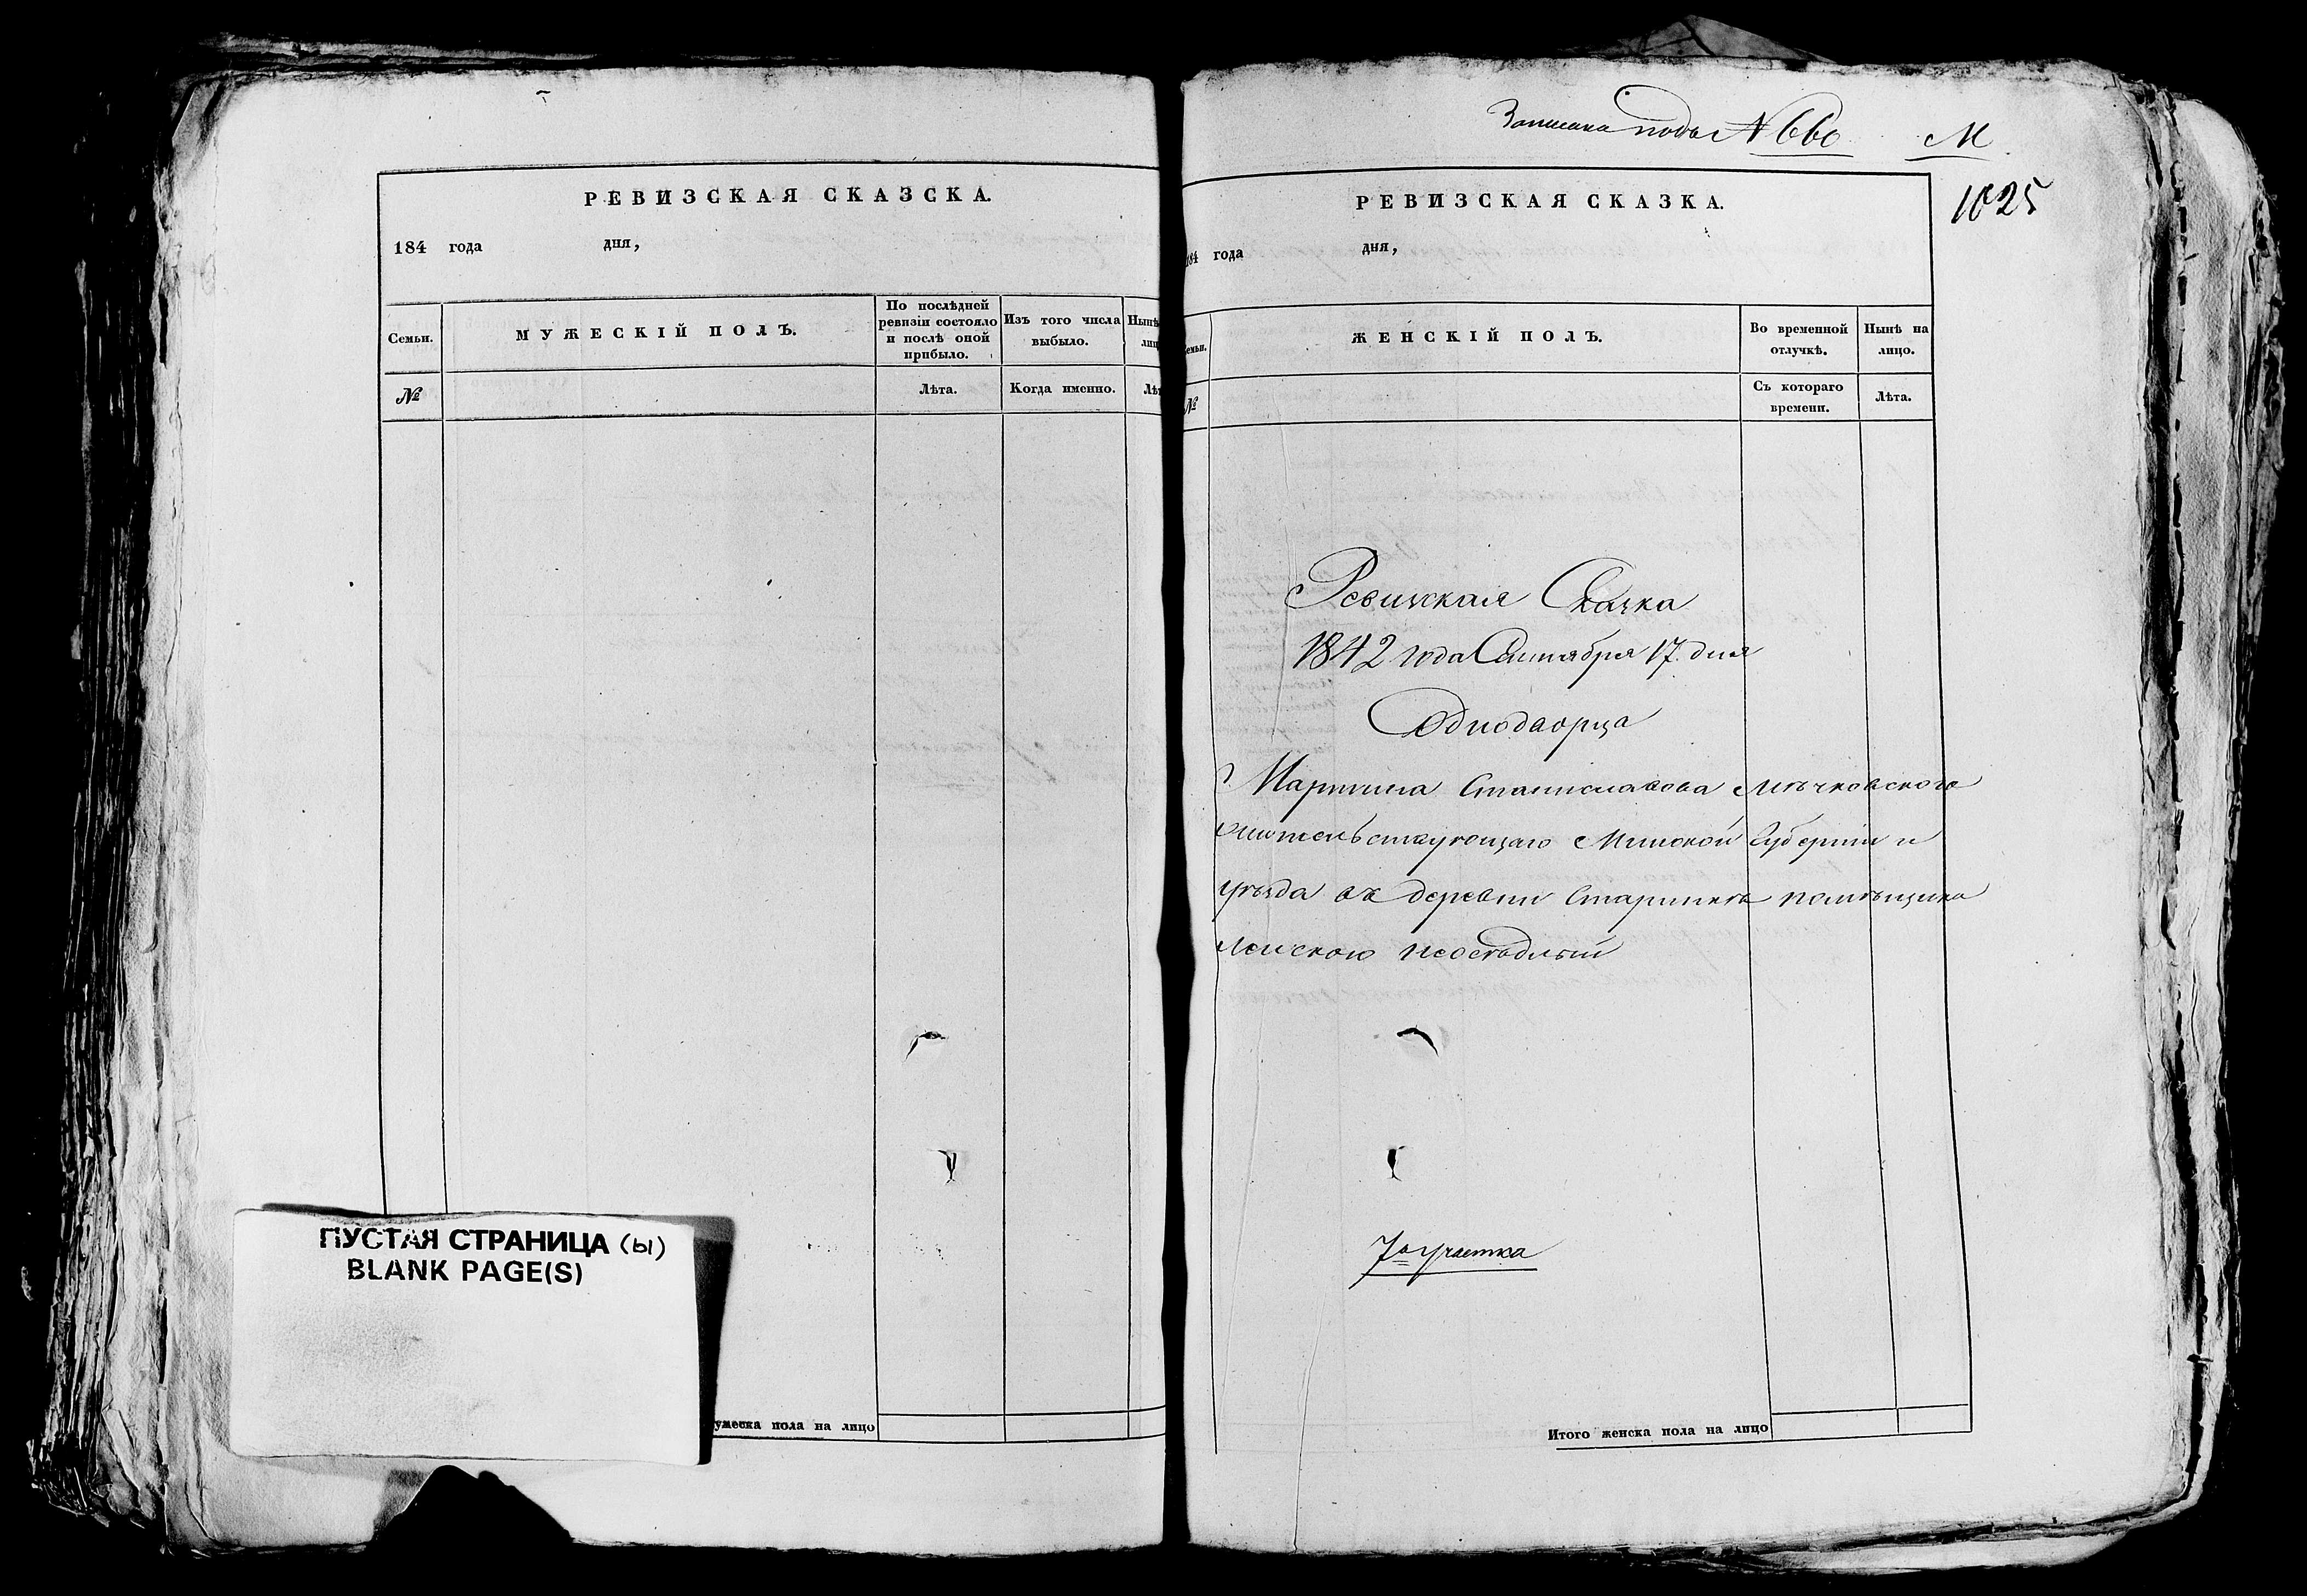 РЕВИЗСКАЯ СКАЗСКА.
184 года дня,
Семьи.
МУЖЕСКІЙ ПОЛЪ.
По послѣдней
ревизіи состояло
и послѣ оной
прибыло.
Изъ того числа
выбыло.
Нынѣ
лиц
№
Лѣта.
Когда именно.
Лѣт
ПУСТАЯ СТРАНИЦА (ы)
BLANK PAGE(S)
ужеска пола на лицо
Записана подъ № 660 М
1025
РЕВИЗСКАЯ СКАЗКА.
184 года дня,
емьи.
ЖЕНСКІЙ ПОЛЪ.
Во временной
отлучкѣ.
Нынѣ на
лицо.
№
Съ котораго
времени.
Лѣта.
Ревизская Сказка
1842 года Сентября 17. дня
Однодворца
Мартина Станиславова Мѣчковского
жительствующаго Минской Губерніи и
уѣзда въ деревни Старинкѣ помѣщика
неосѣдлый
7го участка
Итого женска пола на лицо